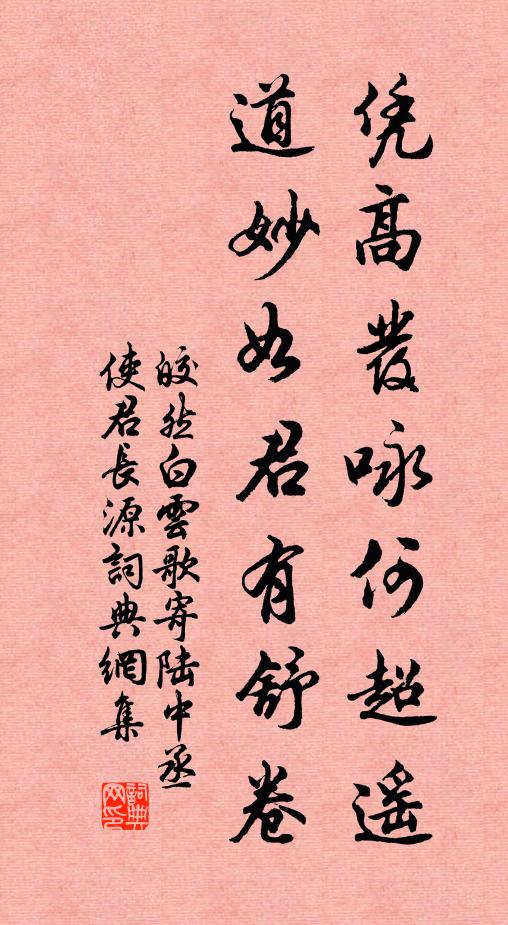 凭高發咏何超遥
道妙如君有舒卷
皎然白雲歌寄陆中丞
使君長源詞典網集
詞典
网印